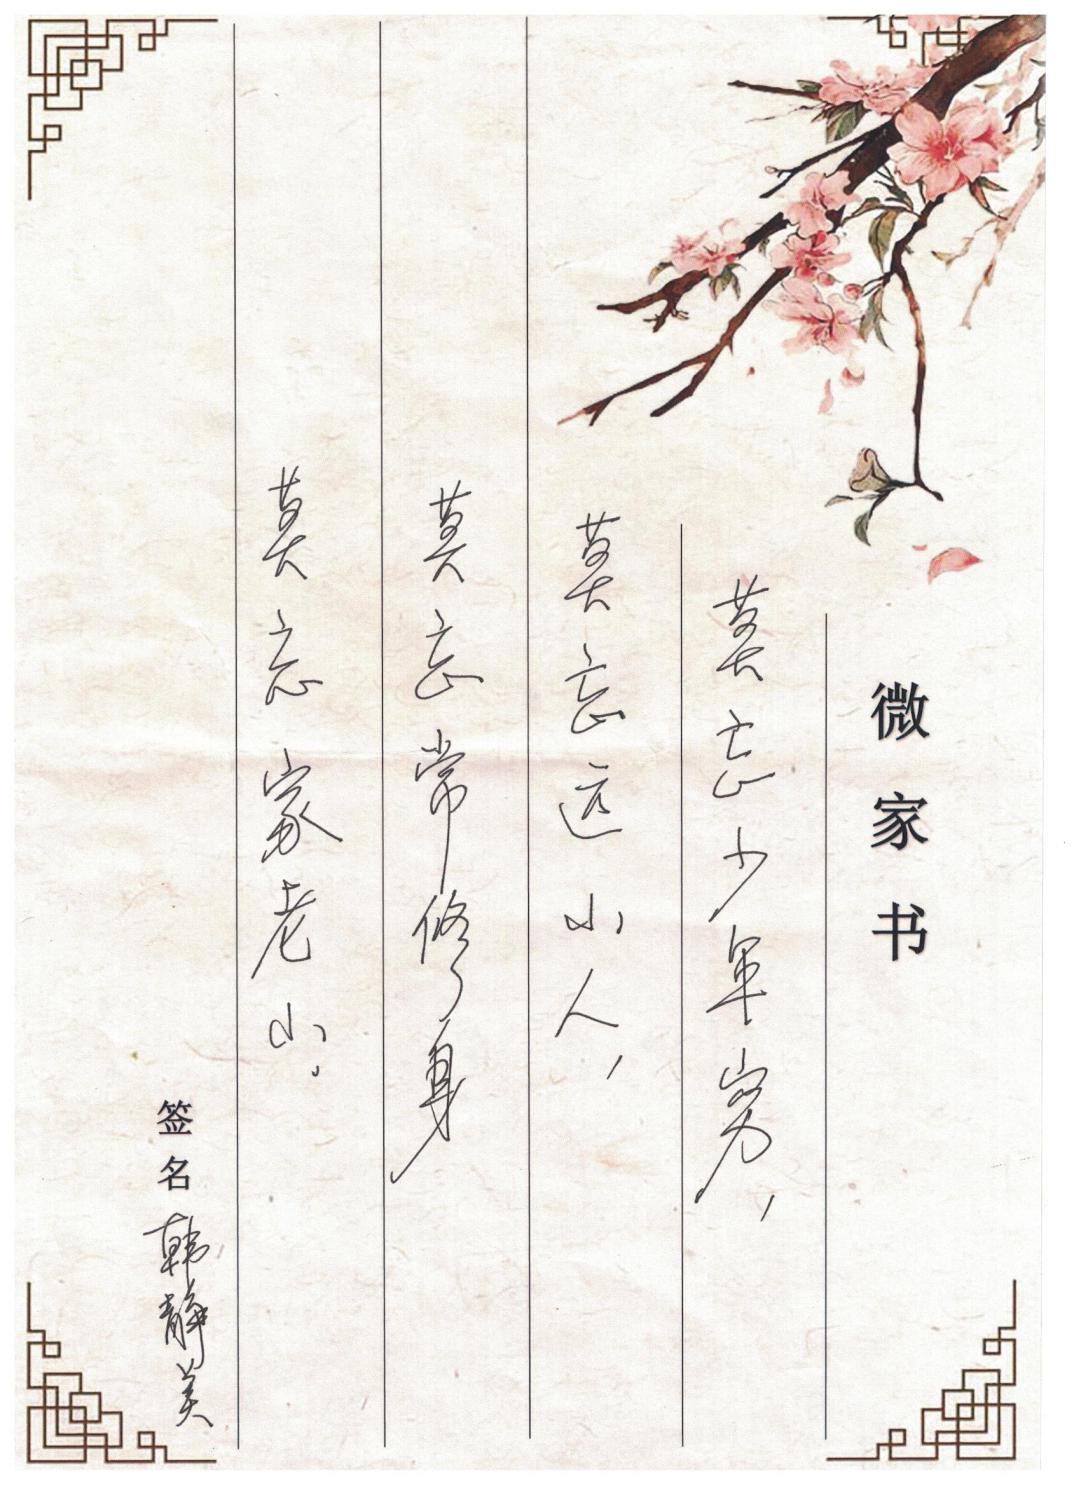 微家书
莫忘少年穷，
莫忘远小人，
莫忘常修身
莫忘家老小。
签名 韩静美